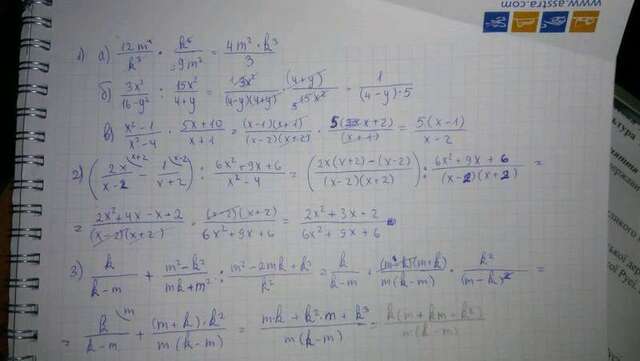 www.asstra.com
1) а) 12m⁴/k³ · k⁶/9m² = 4m²·k³/3
б) 3x²/(16-y²) : 15x²/(4+y) = 3x²/((4-y)(4+y)) · (4+y)/15x² = 1/((4-y)·5)
в) (x²-1)/(x²-4) · (5x+10)/(x+1) = (x-1)(x+1)/((x-2)(x+2)) · 5(x+2)/(x+1) = 5(x-1)/(x-2)
2) (2x/(x-2) - 1/(x+2)) : (6x²+9x+6)/(x²-4) = (2x(x+2)-(x-2))/((x-2)(x+2)) : (6x²+9x+6)/((x-2)(x+2)) =
= (2x²+4x-x+2)/((x-2)(x+2)) · (x-2)(x+2)/(6x²+9x+6) = (2x²+3x+2)/(6x²+9x+6)
3) k/(k-m) + (m²-k²)/(mk+m²) : (m²-2mk+k²)/k² = k/(k-m) + (m-k)(m+k)/(m(k+m)) · k²/(m-k)² =
= k/(k-m) + (m+k)·k²/(m(k-m)) = (mk+k²·m+k³)/(m(k-m)) = k(m+km+k²)/(m(k-m))